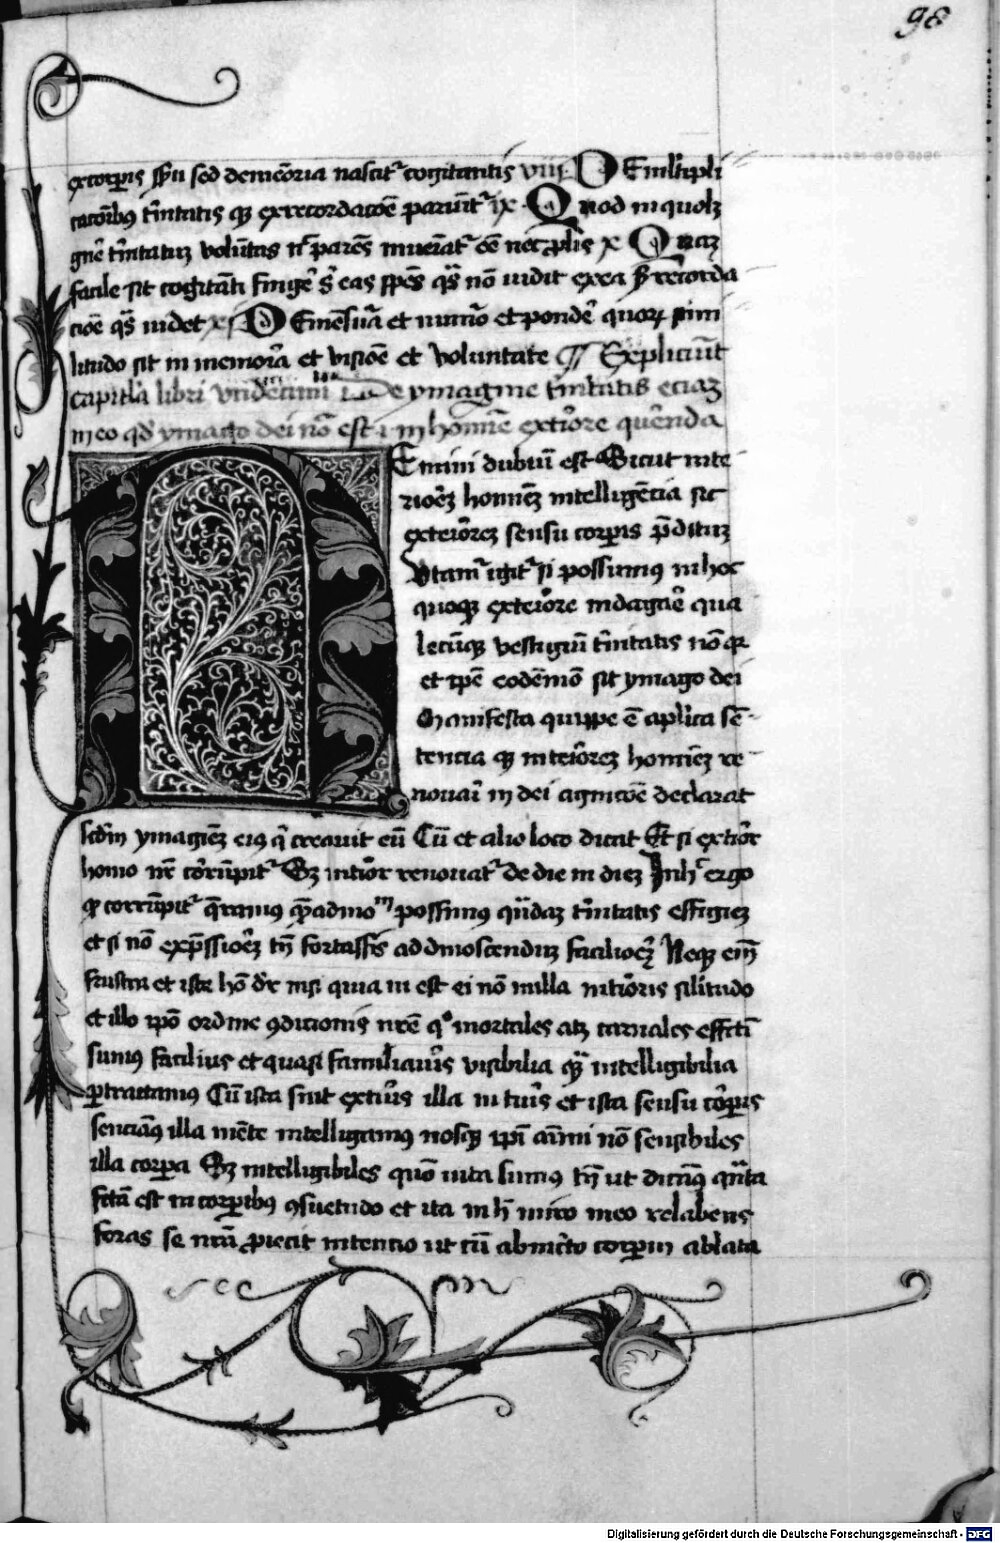 98
ex corporis sensu sed de memoria nascitur cogitantis viij De multipli
catoribus trinitatis que ex recordacione pariuntur ix Quod in quolibet
genere trinitatum voluntas nec parens inueniatur esse nec proles x Quam
facile sit cogitanti fingere secundum eas species quas non uidit ex ea per recorda
cione quas uidet xj De mensura et numero et pondere quorum simi
litudo sit in memoria et visione et voluntate Expliciunt
capitula libri vndecimi De ymagine trinitatis eciam
in eo quod ymago dei non est in homine exteriore querenda
Nemini dubium est Sicut inte
riorem hominem intelligencia sic
exteriorem sensu corporis preditum
Vtamur igitur si possumus in hoc
quoque exteriore indagare qua
lecumque vestigium trinitatis non quia
et ipse eodem modo sit ymago dei
Manifesta quippe est aplica sen
tencia que interiorem hominem re
nouari in dei agnicione declarat
secundum ymaginem eius qui creauit eum Cum et alio loco dicat Et si exterior
homo noster corrumpitur Sed interior renouatur de die in diem In hoc ergo
qui corrumpitur queramus quemadmodum possumus quandam trinitatis effigiem
et si non expressiorem tamen fortassis ad dinoscendum faciliorem Neque enim
frustra et iste homo dicitur nisi quia in est ei non nulla interioris similitudo
et illo ipso ordine condicionis nostre quo mortales atque carnales effecti
sumus facilius et quasi familiarius visibilia quam intelligibilia
pertractamus Cum ista sint exterius illa interius et ista sensu corporis
senciamus illa mente intelligamus nosque ipsi animi non sensibiles
illa corpora Sed intelligibiles quoniam uita sumus tamen ut dicimus quanta
facta est in corporibus consuetudo et ita in hec miro modo relabens
foras se nostra proiecit intencio ut cum ab incerto corporum ablata
Digitalisierung gefördert durch die Deutsche Forschungsgemeinschaft - DFG